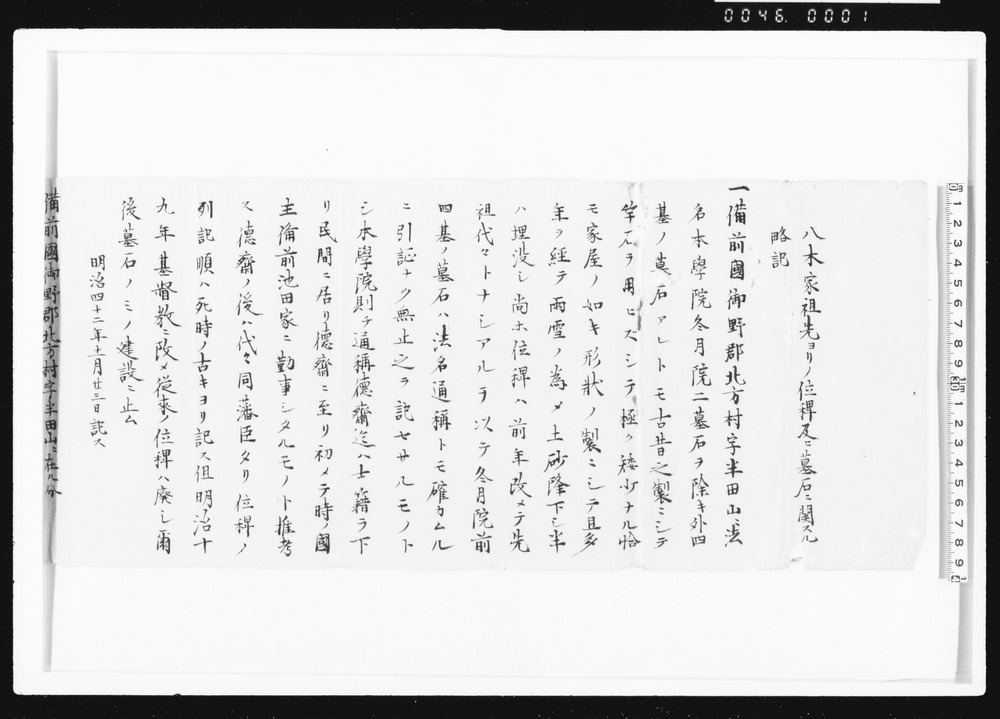 0046.0001
八木家祖先ヨリノ位稗及ニ墓石ニ関スル
略記
一備前國御野郡北方村字半田山ニ法
名本學院冬月院二墓石ヲ除キ外四
基ノ墓石アレトモ古昔之製ニシテ
竿石ヲ用ヒズシテ極ク矮少ナル恰
モ家屋ノ如キ形狀ノ製ニシテ且多
年ヲ経テ雨雪ノ為メ土砂降下シ半
ハ埋没シ尚ホ位稗ハ前年改メテ先
祖代々トナシアルヲ以テ冬月院前
四基ノ墓石ハ法名通稱トモ確カムル
ニ引証ナク無止之ヲ記セサルモノト
シ本學院則チ通稱德齋迄ハ士籍ヲ下
リ民間ニ居リ德齋ニ至リ初メテ時ノ國
主備前池田家ニ勤事シタルモノト推考
ス德齋ノ後ハ代々同藩臣タリ位稗ノ
列記順ハ死時ノ古キヨリ記ス但明治十
九年基督教ニ改メ従来ノ位稗ハ廃シ爾
後墓石ノミノ建設ニ止ム
明治四十二年十一月廿三日記ス
備前國御野郡北方村字半田山ニ在ル分